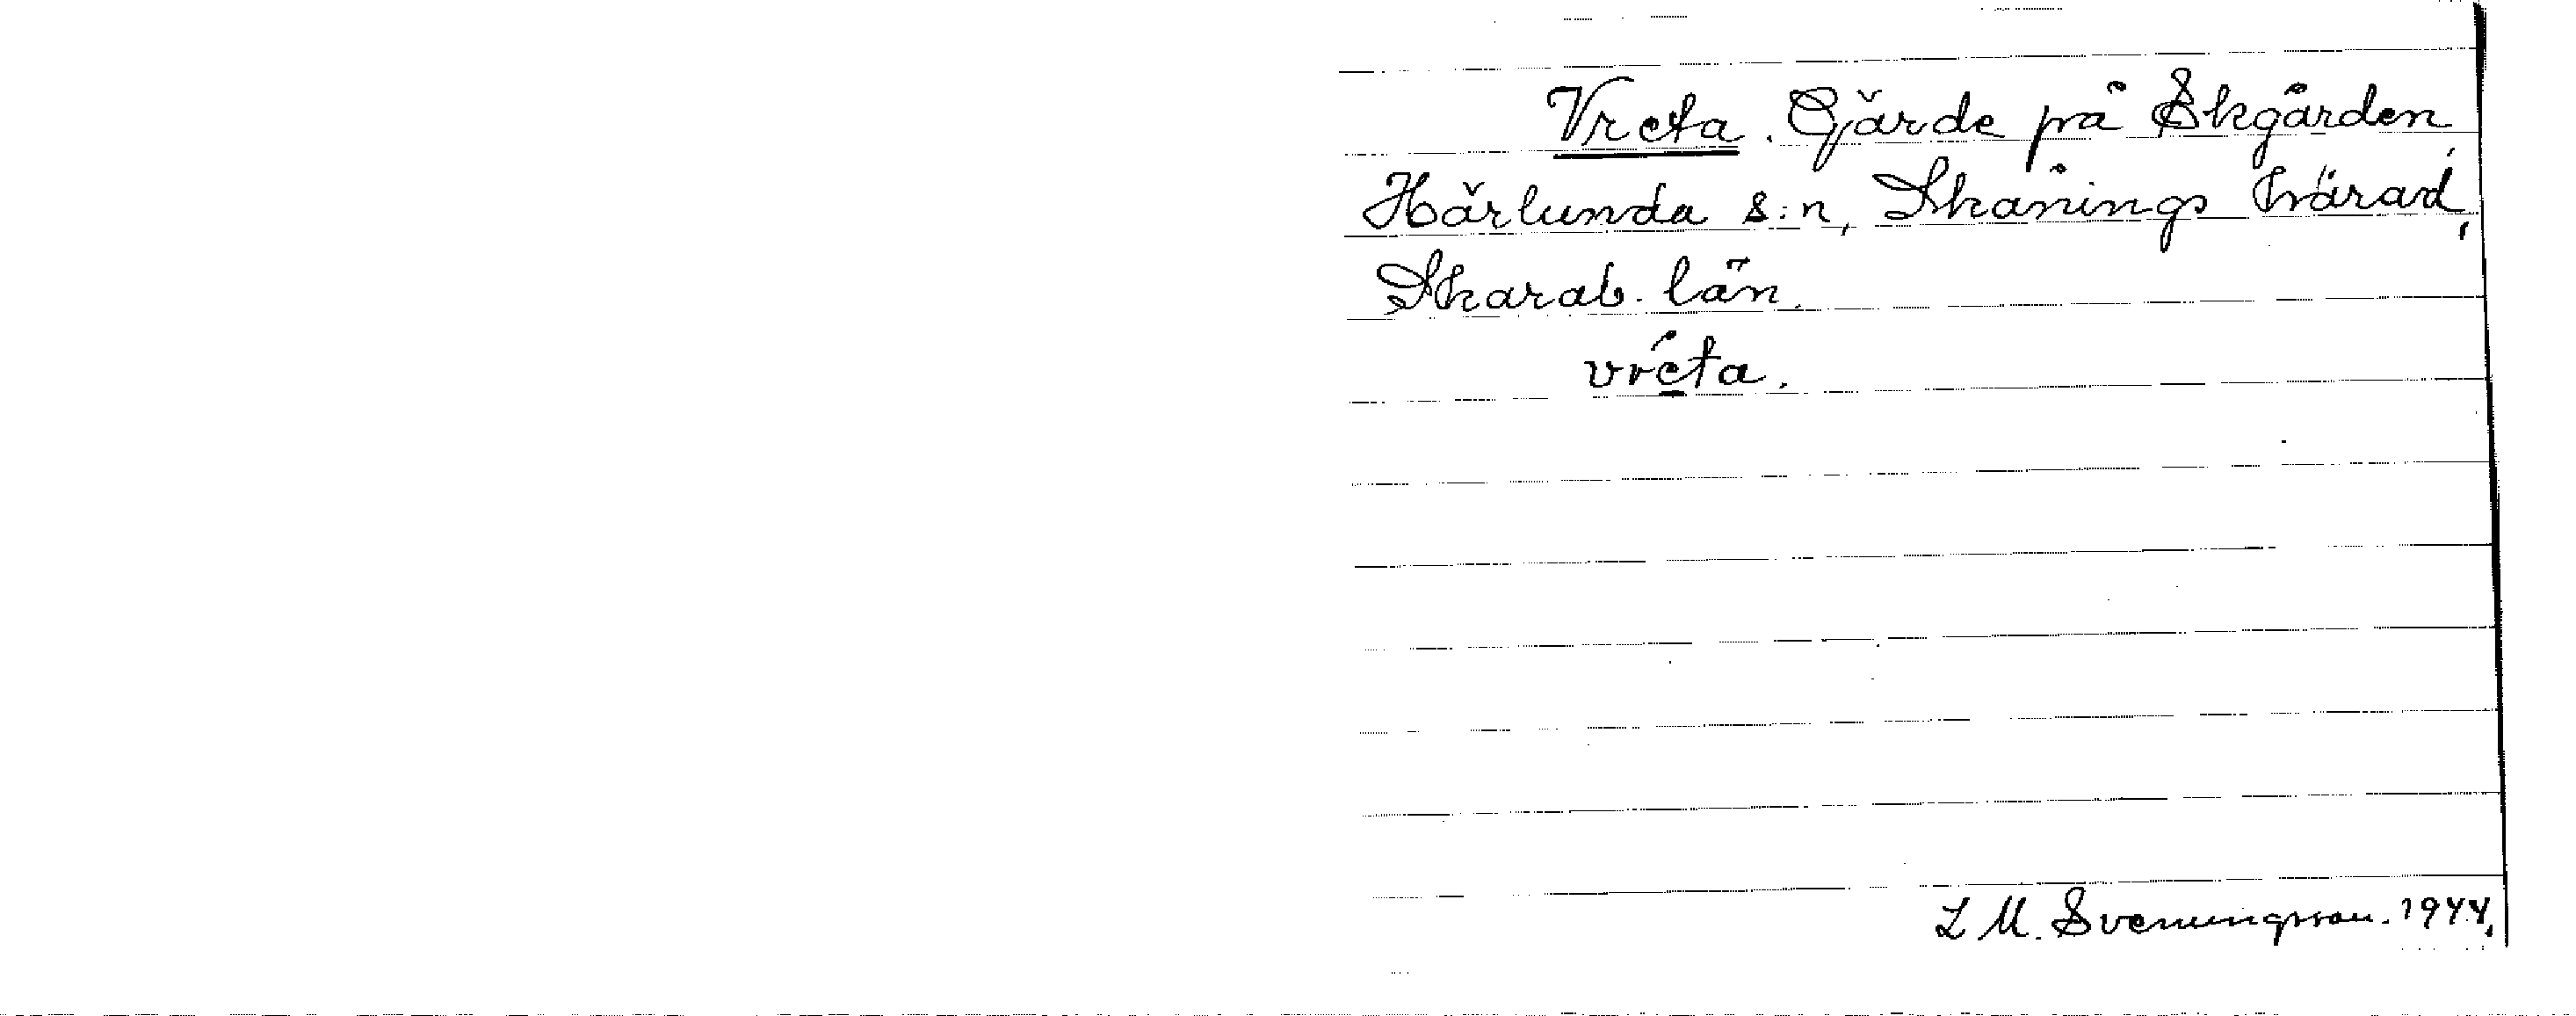 Vreta. Gärde på Ekgården,
Härlunda s:n, Skånings härad,
Skarab. län.
vréta.
L M. Svenungsson. 1944.